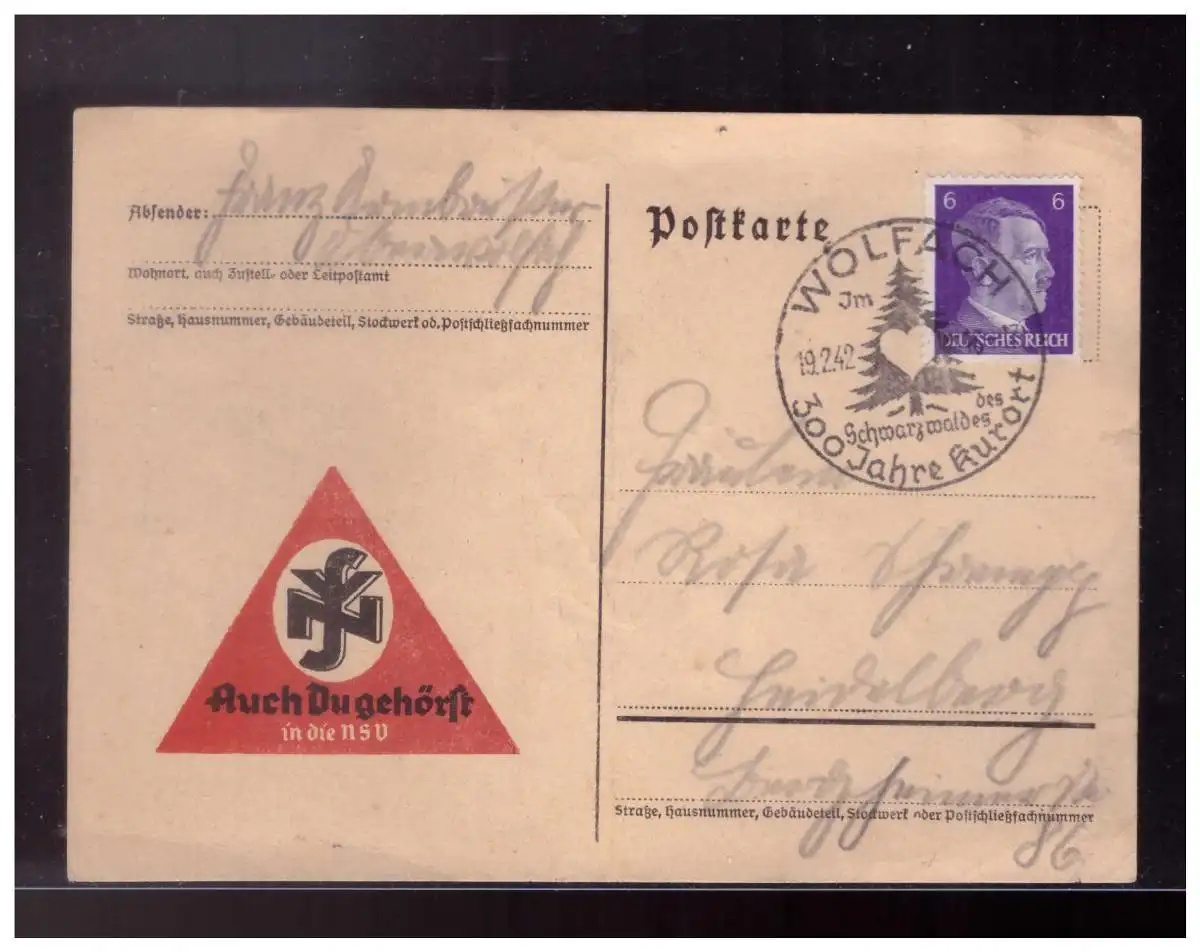 Franz
Absender:
Wohnort, auch Zustell- oder Leitpostamt
Straße, Hausnummer, Gebäudeteil, Stockwerk od. Postschließfachnummer
Auch Du gehörst
in die NSV
Postkarte
6 6
DEUTSCHES REICH
WOLFACH
Im
19.2.42
des
Schwarzwaldes
300 Jahre Kurort
Fräulein
Rosa
Heidelberg
Bergheimerstr
Straße, Hausnummer, Gebäudeteil, Stockwerk oder Postschließfachnummer
86